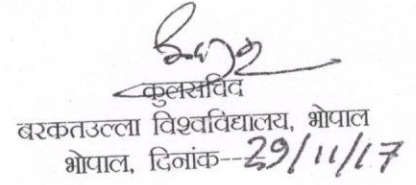 कुलसचिव
बरकतउल्ला विश्वविद्यालय, भोपाल
भोपाल, दिनांक--29/11/17